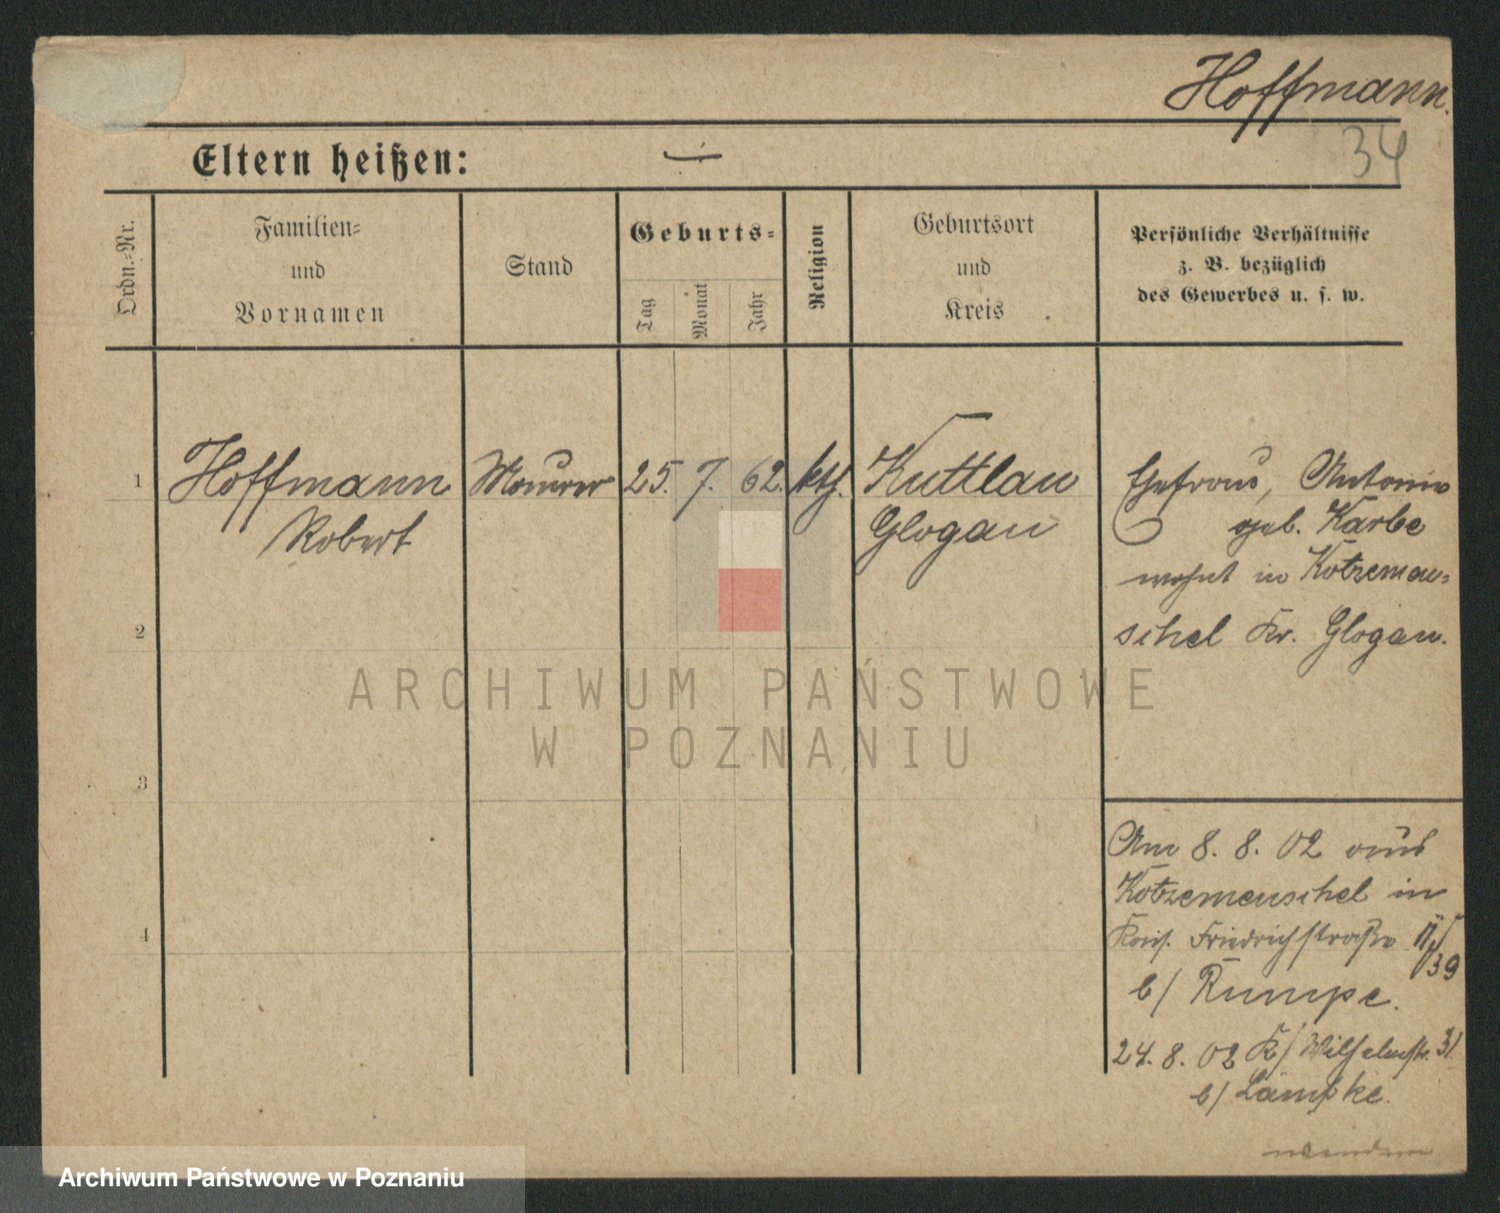 Hoffmann.
34
Eltern heißen:
Ordn.-Nr.
Familien-
und
Vornamen
Stand
Geburts-
Tag
Monat
Jahr
Religion
Geburtsort
und
Kreis
Persönliche Verhältnisse
z. B. bezüglich
des Gewerbes u. s. w.
1
Hoffmann
Robert
Maurer
25. 7. 62.
kth.
Kuttlau
Glogau
Ehefrau, Antonie
geb. Karbe
wohnt in Kotzemeu-
schel Kr. Glogau.
2
3
4
Am 8. 8. 02 aus
Kotzemeuschel in
Friedrichstraße 39
b/ Rumpe.
24. 8. 02 K/ Wilhelmstr. 31
b/ Lämpke.
wenden
ARCHIWUM PAŃSTWOWE
W POZNANIU
Archiwum Państwowe w Poznaniu